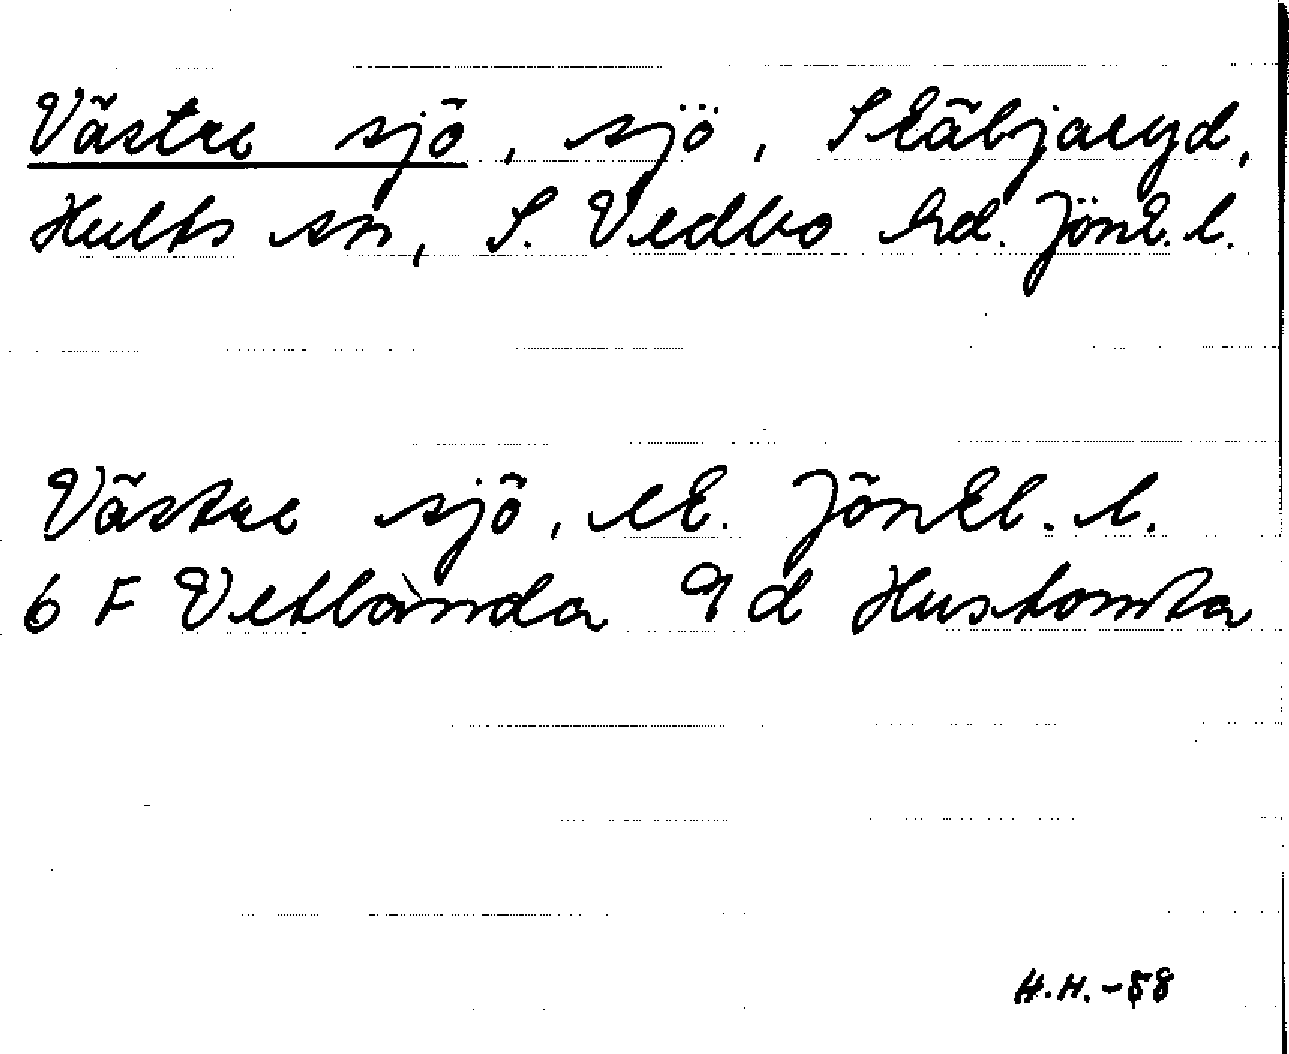 Västre sjö, sjö, Skäbjaryd,
Hults sn, S. Vedbo hd. Jönk. l.
Västre sjö, ek. Jönkl. l.
6 F Vetlanda 9 d Hustomta
H.H.-58